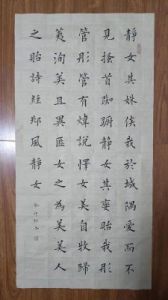 靜女其姝俟我於城隅愛而不
見搔首踟躕靜女其孌貽我彤
管彤管有煒說懌女美自牧歸
荑洵美且異匪女之為美美人
之貽詩經邶風靜女